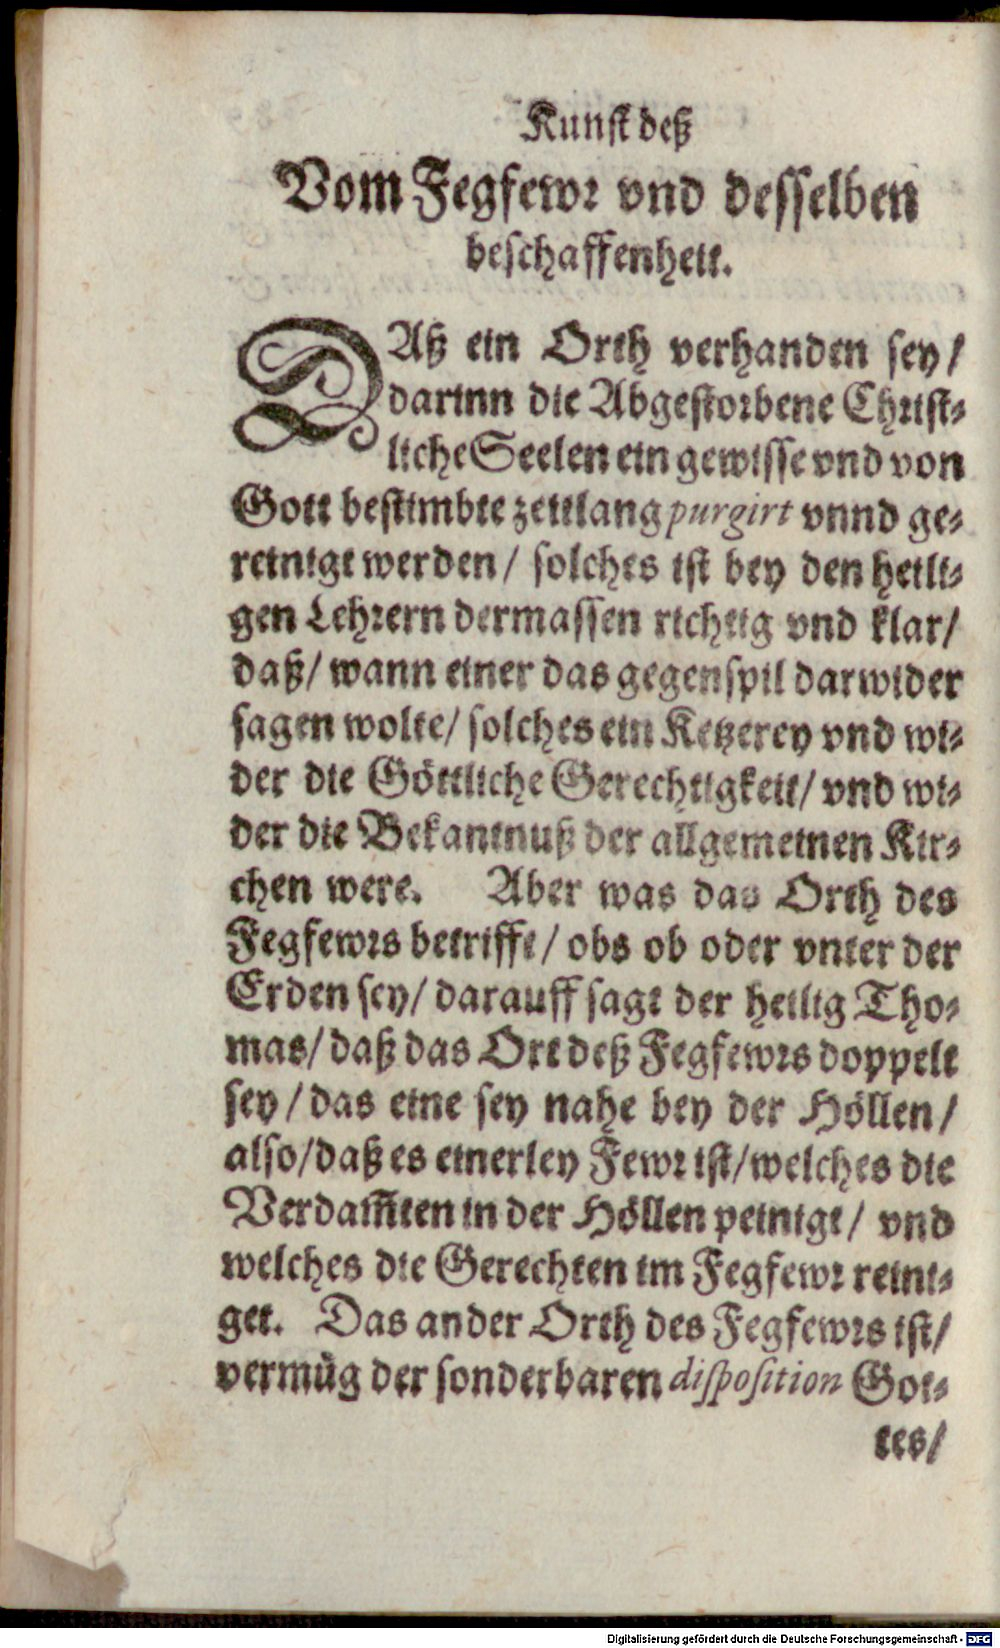 Kunst deß
Vom Fegfewr vnd desselben
beschaffenheit.
DAß ein Orth verhanden sey/
darinn die Abgestorbene Christ-
liche Seelen ein gewisse vnd von
Gott bestimbte zeitlang purgirt vnnd ge-
reinigt werden / solches ist bey den heili-
gen Lehrern dermassen richtig vnd klar/
daß/ wann einer das gegenspil darwider
sagen wolte/ solches ein Ketzerey vnd wi-
der die Göttliche Gerechtigkeit/ vnd wi-
der die Bekantnuß der allgemeinen Kir-
chen were. Aber was das Orth des
Fegfewrs betrifft/ obs ob oder vnter der
Erden sey/ darauff sagt der heilig Tho-
mas/ daß das Ort deß Fegfewrs doppelt
sey / das eine sey nahe bey der Höllen/
also/daß es einerley Fewr ist/welches die
Verdam̃ten in der Höllen peinigt/ vnd
welches die Gerechten im Fegfewr reini-
get. Das ander Orth des Fegfewrs ist/
vermüg der sonderbaren disposition Got-
tes/
Digitalisierung gefördert durch die Deutsche Forschungsgemeinschaft - DFG